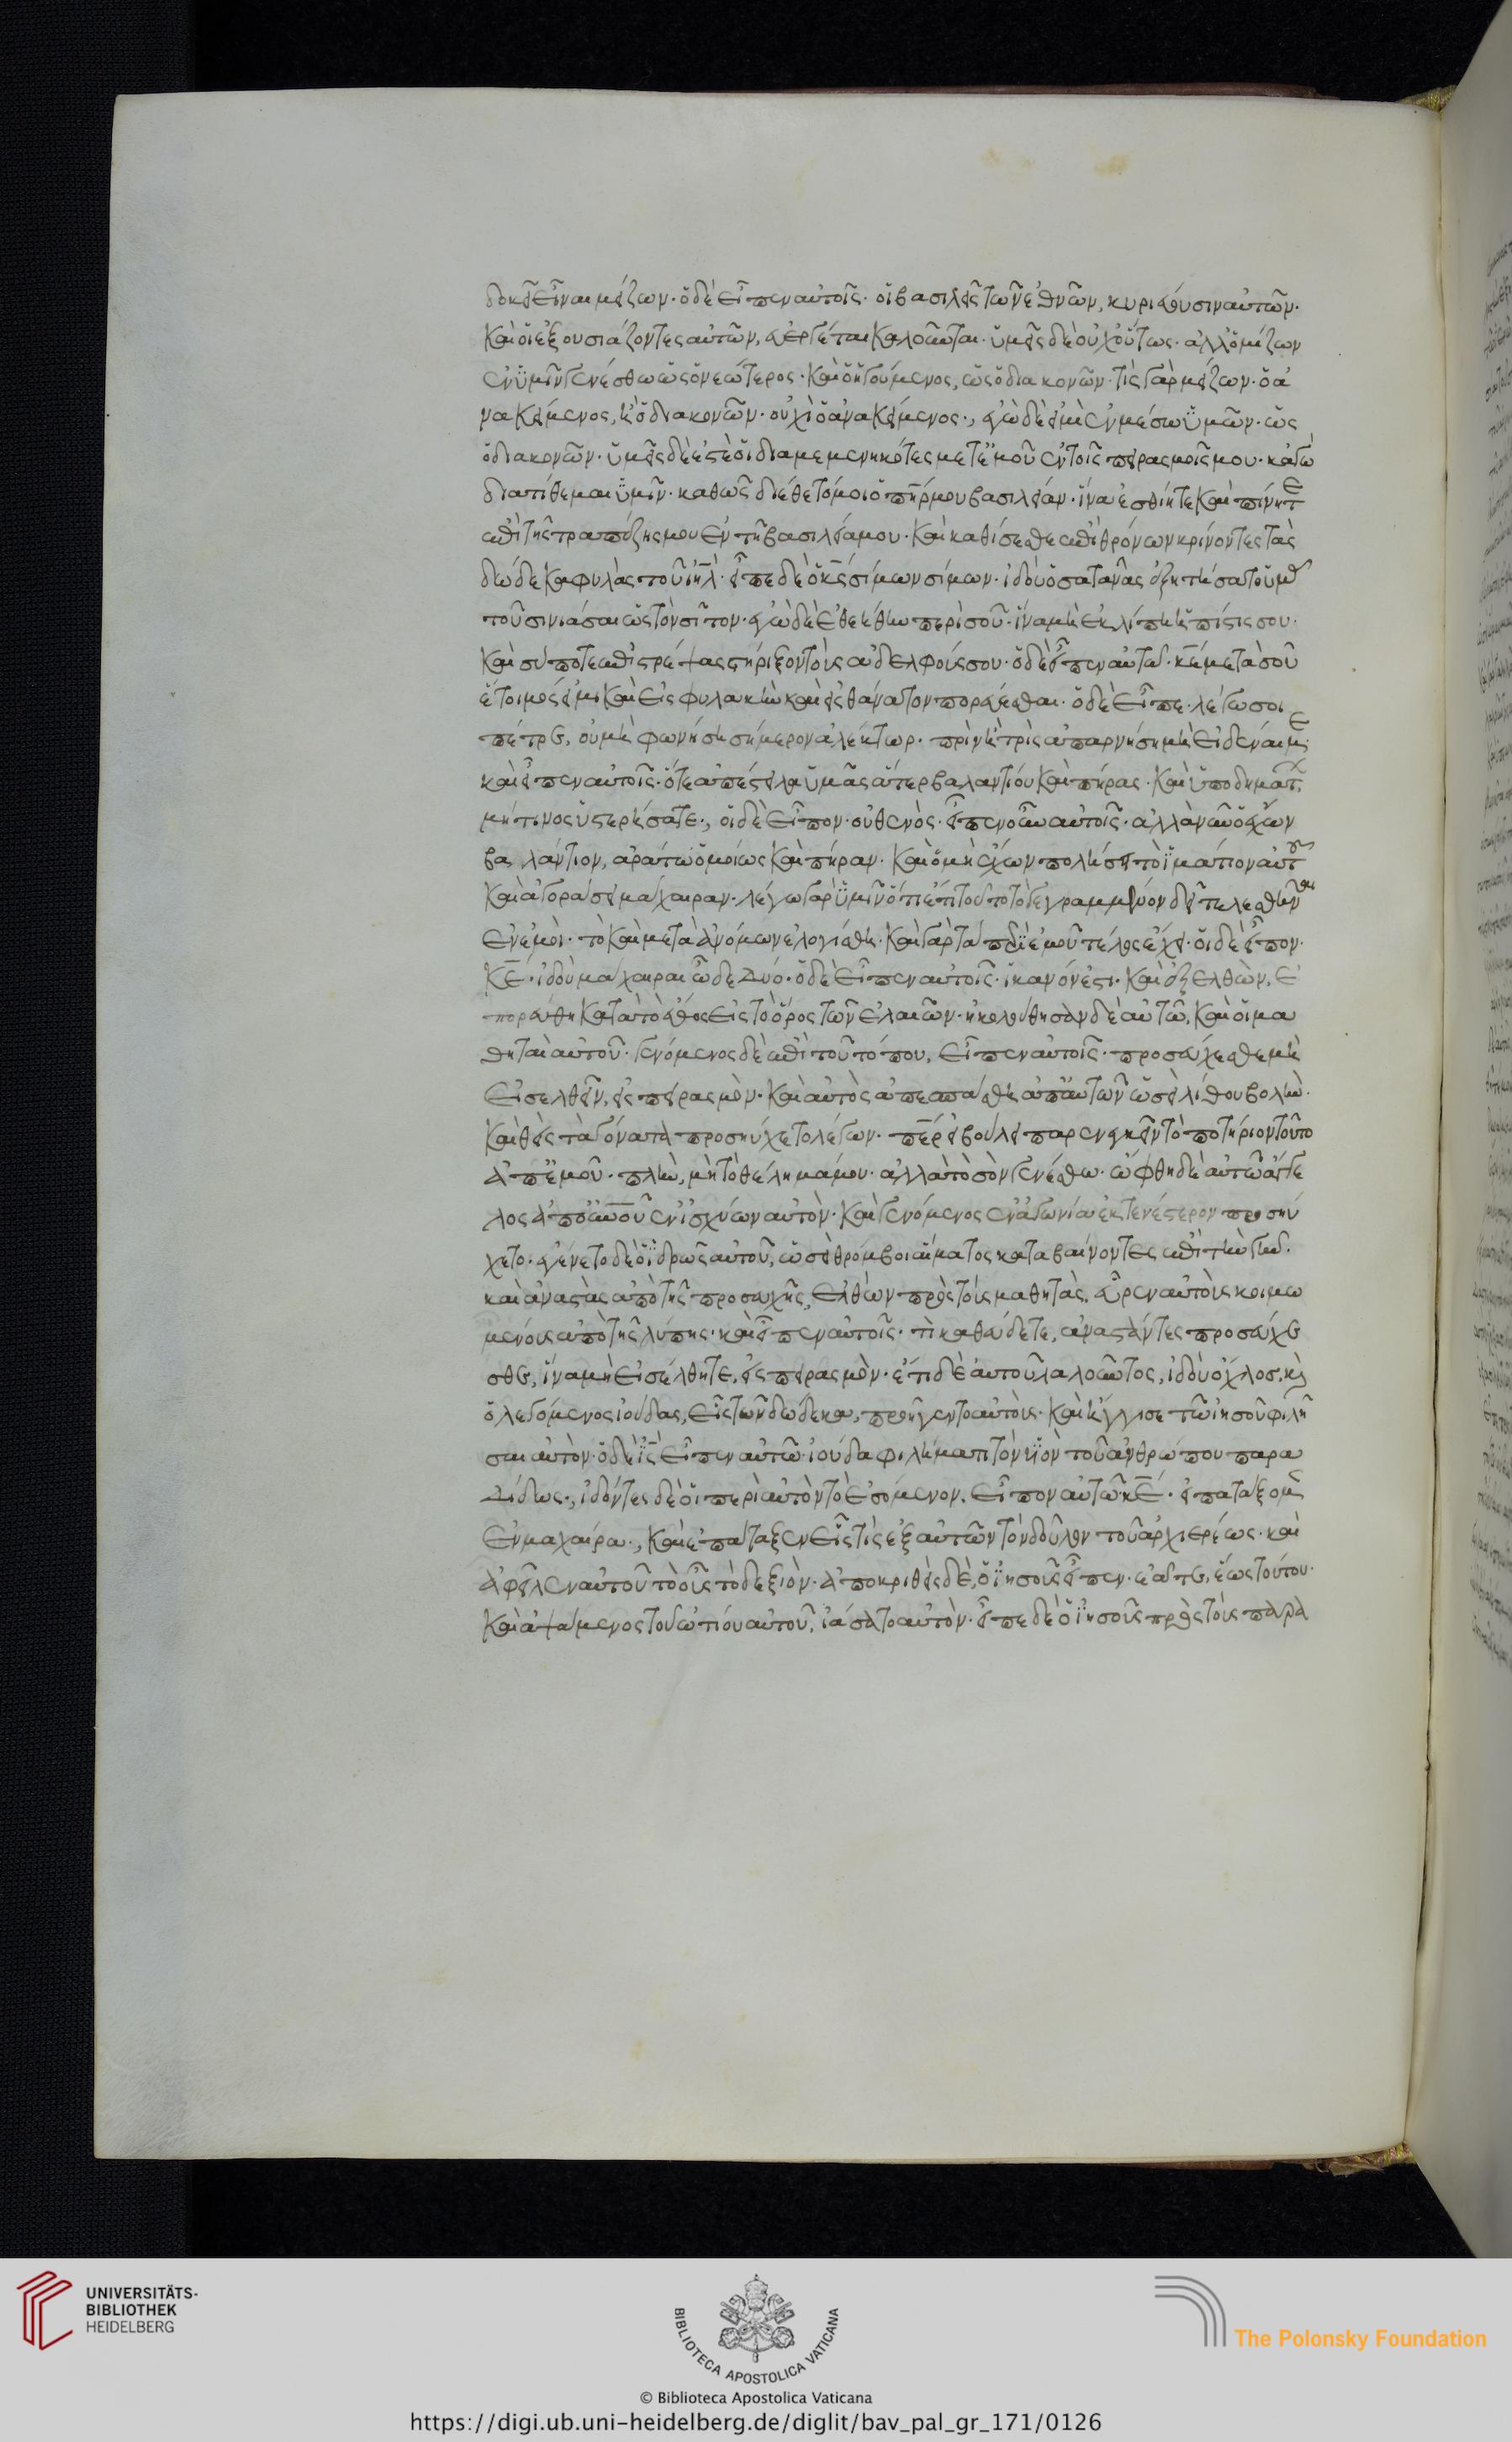 δοκεῖ εἶναι μείζων· ὁ δὲ εἶπεν αὐτοῖς· οἱ βασιλεῖς τῶν ἐθνῶν, κυριεύουσιν αὐτῶν·
καὶ οἱ ἐξουσιάζοντες αὐτῶν, εὐεργέται καλοῦνται· ὑμεῖς δὲ οὐχ οὕτως· ἀλλ ὁ μείζων
ἐν ὑμῖν γενέσθω ὡς ὁ νεώτερος· καὶ ὁ ἡγούμενος, ὡς ὁ διακονῶν· τίς γὰρ μείζων· ὁ ἀ
νακείμενος, ἢ ὁ διακονῶν· οὐχὶ ὁ ἀνακείμενος., ἐγὼ δὲ εἰμὶ ἐν μέσω ὑμῶν· ὡς
ὁ διακονῶν· ὑμεῖς δὲ ἐστὲ οἱ διαμεμενηκότες μετ ἐμοῦ ἐν τοῖς πειρασμοῖς μου· κἀγὼ
διατίθεμαι ὑμῖν· καθὼς διέθετό μοι ὁ πηρ μου βασιλείαν· ἵνα ἐσθίητε καὶ πίνητε
ἐπὶ τῆς τραπέζης μου ἐν τῆ βασιλεία μου· καὶ καθίσεσθε ἐπὶ θρόνων κρίνοντες τὰς
δώδεκα φυλὰς τοῦ ιηλ· εἶπε δὲ ὁ κς σίμων σίμων· ἰδοὺ ὁ σατανᾶς ἐξητήσατο ὑμᾶς
τοῦ σινιάσαι ὡς τὸν σῖτον· ἐγὼ δὲ ἐδεήθην περὶ σοῦ· ἵνα μὴ ἐκλίπη ἡ πίστις σου·
καὶ σύ ποτε ἐπιστρέψας στήριξον τοὺς ἀδελφούς σου· ὁ δὲ εἶπεν αὐτῶ· κε μετὰ σοῦ
ἕτοιμός εἰμι καὶ εἰς φυλακὴν καὶ εἰς θάνατον πορεύεσθαι· ὁ δὲ εἶπε· λέγω σοι
πέτρε, οὐ μὴ φωνήση σήμερον ἀλέκτωρ· πρὶν ἢ τρὶς ἀπαρνήση μὴ εἰδέναι με·
καὶ εἶπεν αὐτοῖς· ὅτε ἀπέστειλα ὑμᾶς ἄτερ βαλαντίου καὶ πήρας· καὶ ὑποδημάτων
μή τινος ὑστερήσατε., οἱ δὲ εἶπον· οὐθενός· εἶπεν οὖν αὐτοῖς· ἀλλὰ νῦν ὁ ἔχων
βαλάντιον, ἀράτω ὁμοίως καὶ πήραν· καὶ ὁ μὴ ἔχων πολήσει τὸ ἱμάτιον αὐτοῦ
καὶ ἀγοράσει μάχαιραν· λέγω γὰρ ὑμῖν ὅτι ἔτι τοῦτο τὸ γεγραμμένον δεῖ τελεσθῆναι
ἐν ἐμοί· τὸ καὶ μετὰ ἀνόμων ἐλογίσθη· καὶ γὰρ τὰ περὶ ἐμοῦ τέλος ἔχει· οἱ δὲ εἶπον·
κε· ἰδοὺ μάχαιραι ὧδε δύο· ὁ δὲ εἶπεν αὐτοῖς· ἱκανόν ἐστι· καὶ ἐξελθὼν, ἐ
πορεύθη κατὰ τὸ ἔθος εἰς τὸ ὄρος τῶν ἐλαιῶν· ἠκολούθησαν δὲ αὐτῶ, καὶ οἱ μα
θηταὶ αὐτοῦ· γενόμενος δὲ ἐπὶ τοῦ τόπου, εἶπεν αὐτοῖς· προσεύχεσθε μὴ
εἰσελθεῖν, εἰς πειρασμὸν· καὶ αὐτὸς ἀπεσπάσθη ἀπ αὐτῶν ὡσεὶ λίθου βολὴν·
καὶ θεὶς τὰ γόνατα προσηύχετο λέγων· περ εἰ βούλει παρενεγκεῖν τὸ ποτήριον τοῦτο
ἀπ ἐμοῦ· πλὴν, μὴ τὸ θέλημά μου· ἀλλὰ τὸ σὸν γενέσθω· ὤφθη δὲ αὐτῶ ἄγγε
λος ἀπὸ οὐνοῦ ἐνισχύων αὐτὸν· καὶ γενόμενος ἐν ἀγωνία ἐκτενέστερον προσηύ
χετο· ἐγένετο δὲ ὁ ἱδρὼς αὐτοῦ, ὡσεὶ θρόμβοι αἵματος καταβαίνοντες ἐπὶ τὴν γῆν·
καὶ ἀναστὰς ἀπὸ τῆς προσευχῆς, ἐλθὼν πρὸς τοὺς μαθητὰς, εὗρεν αὐτοὺς κοιμω
μένους ἀπὸ τῆς λύπης· καὶ εἶπεν αὐτοῖς· τί καθεύδετε, ἀναστάντες προσεύχε
σθε, ἵνα μὴ εἰσέλθητε, εἰς πειρασμὸν· ἔτι δὲ αὐτοῦ λαλοῦντος, ἰδοὺ ὄχλος· καὶ
ὁ λεγόμενος ἰούδας, εἷς τῶν δώδεκα, προῆγεν τοαὐτοὺς· καὶ ἤγγισε τῶ ἰησοῦ φιλῆ
σαι αὐτὸν· ὁ δὲ ις εἶπεν αὐτῶ· ἰούδα φιλήματι τὸν υἱὸν τοῦ ἀνθρώπου παρα
δίδως., ἰδόντες δὲ οἱ περὶ αὐτὸν τὸ ἐσόμενον, εἶπον αὐτῶ κε· εἰ πατάξομεν
ἐν μαχαίρα., καὶ ἐπάταξεν εἷς τις ἐξ αὐτῶν τὸν δοῦλον τοῦ ἀρχιερέως· καὶ
ἀφεῖλεν αὐτοῦ τὸ οὖς τὸ δεξιὸν· ἀποκριθεὶς δὲ, ὁ ἰησοῦς εἶπεν· ἐᾶτε, ἕως τούτου·
καὶ ἁψάμενος τοῦ ὠτίου αὐτοῦ, ἰάσατο αὐτὸν· εἶπε δὲ ὁ ἰησοῦς πρὸς τοὺς παρα
UNIVERSITÄTS-
BIBLIOTHEK
HEIDELBERG
BIBLIOTECA APOSTOLICA VATICANA
The Polonsky Foundation
© Biblioteca Apostolica Vaticana
https://digi.ub.uni-heidelberg.de/diglit/bav_pal_gr_171/0126